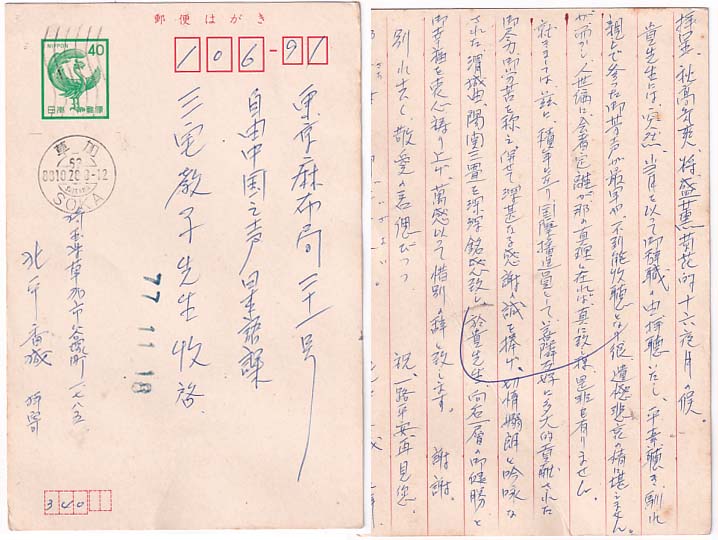 郵便はがき
NIPPON
40
日本郵便
106-91
東京麻布局三十一号
自由中国之声日本語課
三宅教子先生収啓
埼玉県草加市
北平香城
草加
88.10.26 8-12
SOKA
77 11 18
340
拝呈、秋高気爽、将盛薫菊花的十六夜月の候、
貴先生には、突然、当月を以って御辞職の由拝聴いたし、平素聴き馴れ
親しで参った御芳声が最早や、不可能収聴となり很、遺憾悲哀の情に堪えません。
人世編に会者定離が那の真理、在れば、真に致様、是非も有りません。
就きましては茲に、積年に亘り国際播送員として、善隣友好に多大的貢献された
御尽力御労苦を称え、併せて深甚なる感謝の誠を捧げ、切情朗朗と吟咏な
された渭城曲、陽関三畳を深深銘感致し、於貴先生、向后一層の御健勝と
御幸福を衷心祷り上げ、萬感以って惜別の辞と致します。 謝謝。
別れ去く、敬愛の善偲びつつ 祝、一路平安再見您。